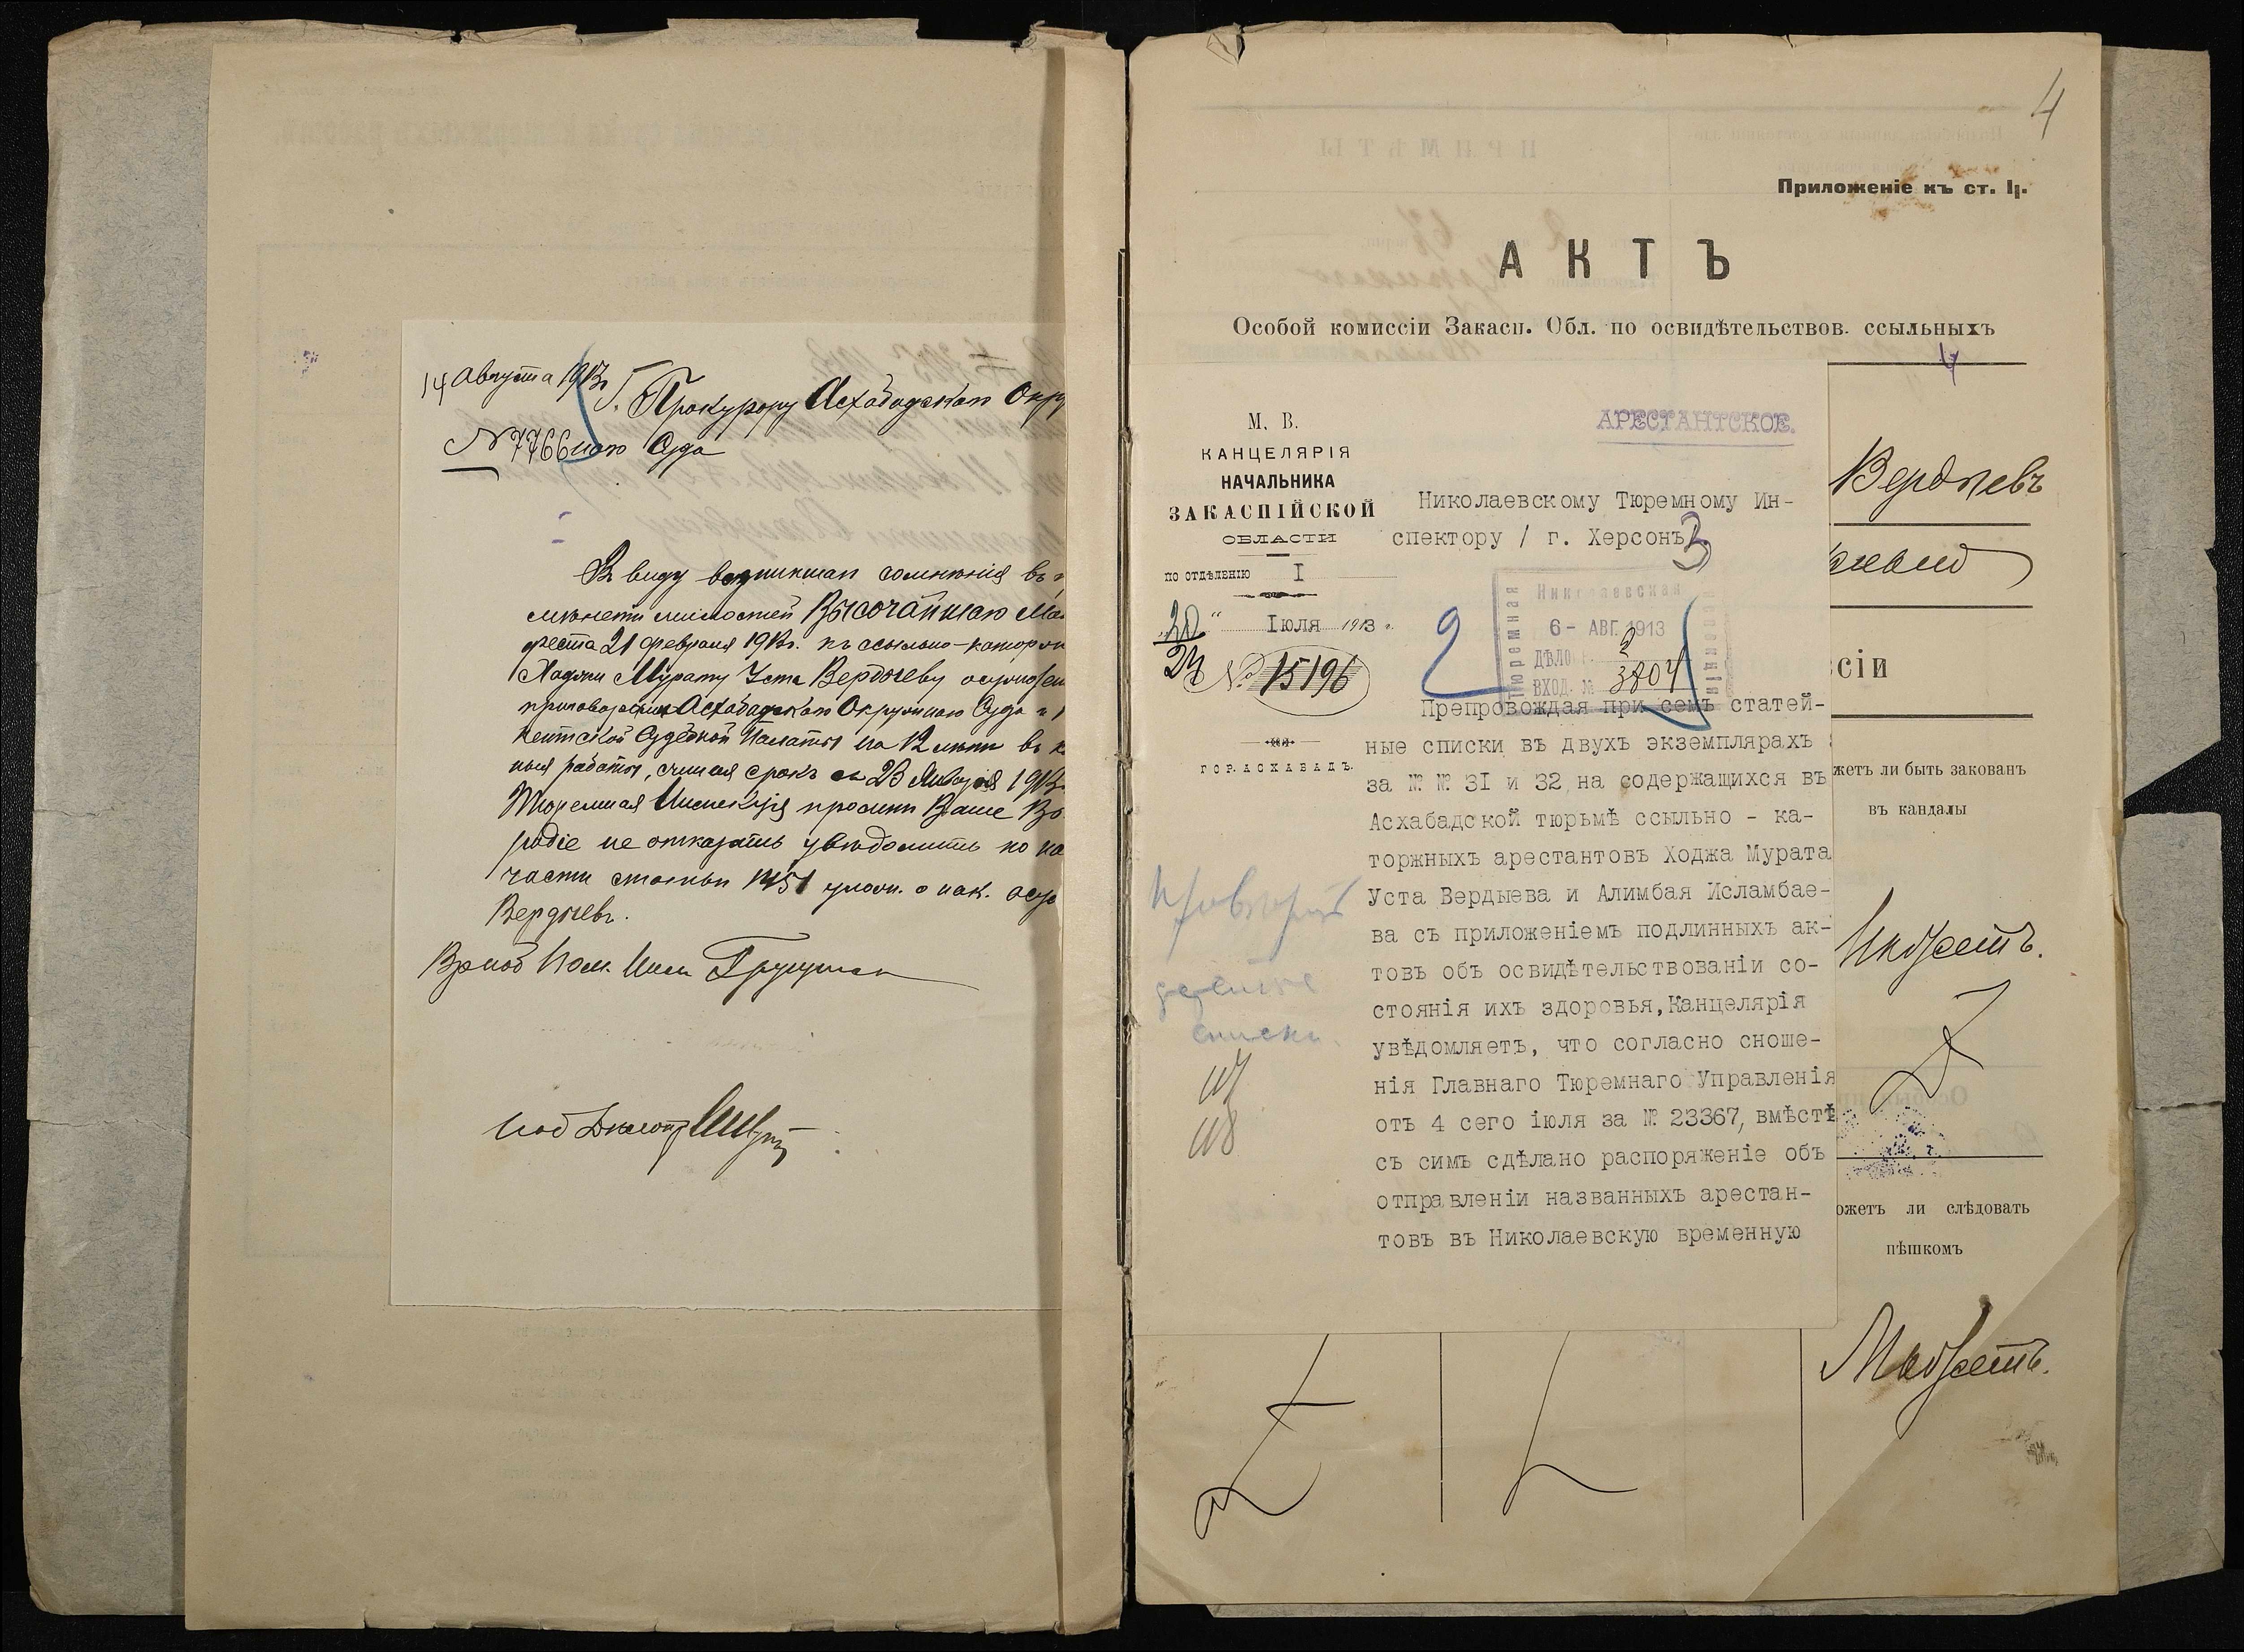 14 Августа 1913 г.
№ 7766
Г. Прокурору Асхабадскаго Окру
наго Суда
Въ виду возникшаго сомненія въ
мѣнети милостей Высочайшаго Ма
феста 21 февраля 1913 г. къ ссыльно-каторжн
Хаджи Мурату Уста Вердыеву осужден
приговорами Асхабадскаго Окружнаго Суда и
кентской Судебной Палаты на 12 лѣтъ въ к
ныя работы, считая срокъ съ 23 Января 1913 г.
Тюремная Инспекція проситъ Ваше Вы
родіе не отказать увѣдомить по ка
части статьи 1451 улож. о нак. осуж
Вердыевъ.
Пом. Инсп.
4
Приложеніе къ ст. 14.
АКТЪ
Особой комиссіи Закасп. Обл. по освидѣтельствов. ссыльныхъ
4
М. В.
КАНЦЕЛЯРІЯ
НАЧАЛЬНИКА
ЗАКАСПІЙСКОЙ
ОБЛАСТИ
ПО ОТДѢЛЕНІЮ I
20/24 " Іюля 1913 г.
№ 15196
ГОР. АСХАБАДЪ.
АРЕСТАНТСКОЕ.
Николаевскому Тюремному Ин-
спектору / г. Херсонъ
3
2
Николаевская
Тюремная
6 - АВГ. 1913
ДѢЛО 2
ВХОД. № 3804
Препровождая при семъ статей-
ные списки въ двухъ экземплярахъ
за № № 31 и 32 на содержащихся въ
Асхабадской тюрьмѣ ссыльно - ка-
торжныхъ арестантовъ Ходжа Мурата
Уста Вердыева и Алимбая Исламбае-
ва съ приложеніемъ подлинныхъ ак-
товъ объ освидѣтельствованіи со-
стоянія ихъ здоровья, Канцелярія
увѣдомляетъ, что согласно сноше-
нія Главнаго Тюремнаго Управленія
отъ 4 сего іюля за № 23367, вмѣстѣ
съ симъ сдѣлано распоряженіе объ
отправленіи названныхъ арестан-
товъ въ Николаевскую временную
списки.
Вердыевъ
сіи
жетъ ли быть закованъ
въ кандалы
Можетъ.
ожетъ ли слѣдовать
пѣшкомъ
Можетъ.